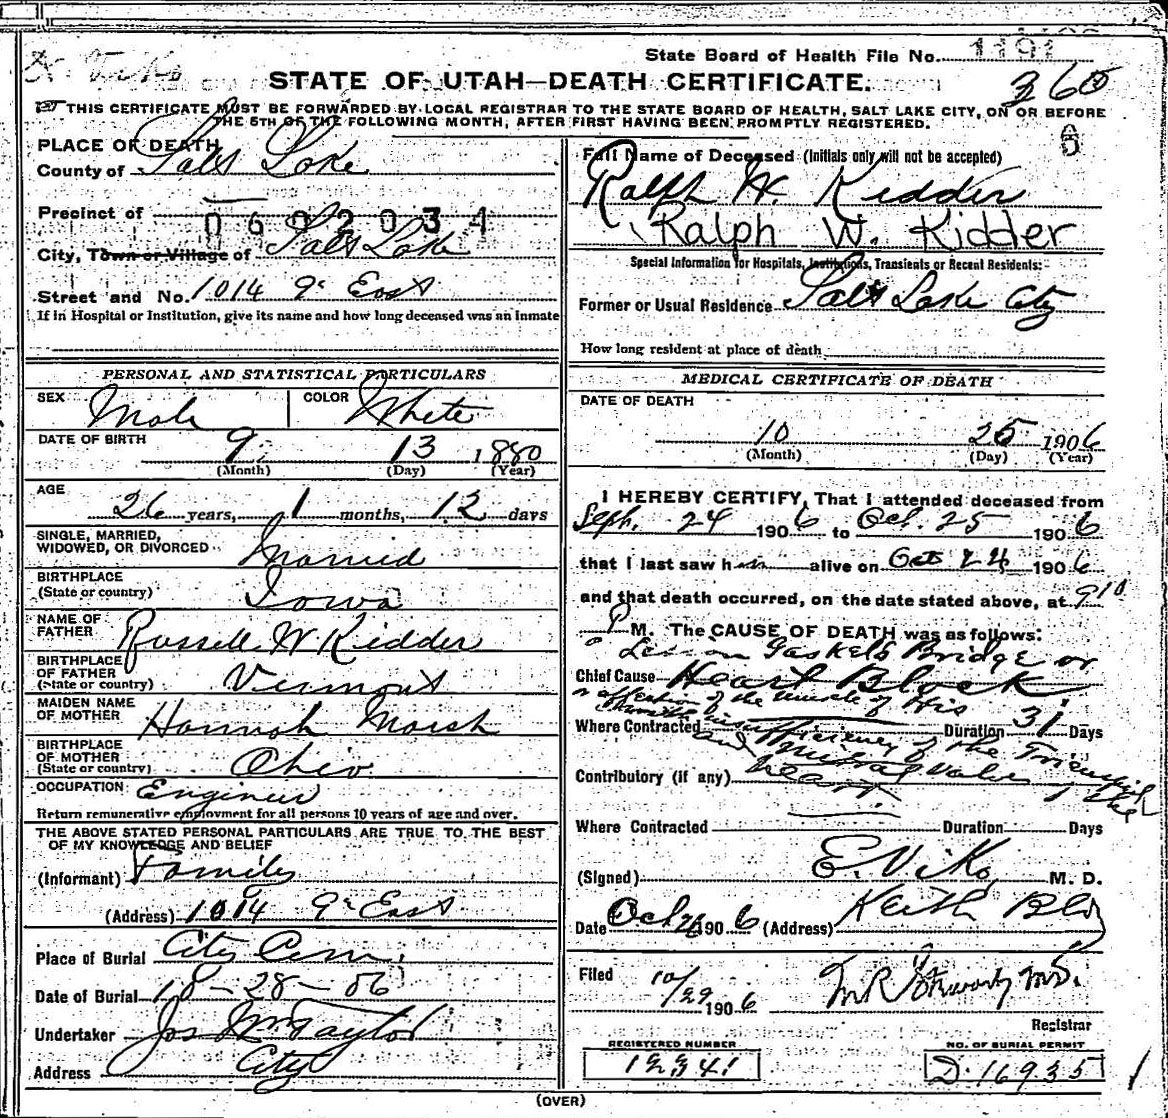 State Board of Health File No. 1191
E. Viko
STATE OF UTAH—DEATH CERTIFICATE.
360
THIS CERTIFICATE MUST BE FORWARDED BY LOCAL REGISTRAR TO THE STATE BOARD OF HEALTH, SALT LAKE CITY, ON OR BEFORE
THE 5TH OF THE FOLLOWING MONTH, AFTER FIRST HAVING BEEN PROMPTLY REGISTERED.
PLACE OF DEATH
County of Salt Lake
Precinct of
0602034
City, Town or Village of Salt Lake
Street and No. 1014 9" East
If in Hospital or Institution, give its name and how long deceased was an Inmate
PERSONAL AND STATISTICAL PARTICULARS
SEX Male COLOR White
DATE OF BIRTH 9 13 1880
(Month) (Day) (Year)
AGE
26 years, 1 months, 12 days
SINGLE, MARRIED,
WIDOWED, OR DIVORCED Married
BIRTHPLACE
(State or country) Iowa
NAME OF
FATHER Russell W Kidder
BIRTHPLACE
OF FATHER
(State or country) Vermont
MAIDEN NAME
OF MOTHER Hannah Marsh
BIRTHPLACE
OF MOTHER
(State or country) Ohio
OCCUPATION Engineer
Return remunerative employment for all persons 10 years of age and over.
THE ABOVE STATED PERSONAL PARTICULARS ARE TRUE TO THE BEST
OF MY KNOWLEDGE AND BELIEF
(Informant) Family
(Address) 1014 9" East
Place of Burial City Cem.
Date of Burial 10-28-06
Undertaker Jos Wm Taylor
Address City
6
Full Name of Deceased (Initials only will not be accepted)
Ralph W. Kidder
Ralph W. Kidder
Special Information for Hospitals, Institutions, Transients or Recent Residents:
Former or Usual Residence Salt Lake City
How long resident at place of death
MEDICAL CERTIFICATE OF DEATH
DATE OF DEATH
10 25 1906
(Month) (Day) (Year)
I HEREBY CERTIFY, That I attended deceased from
Seph. 24 1906 to Oct. 25 1906
that I last saw him alive on Oct 24 1906
and that death occurred, on the date stated above, at 9 10
P M. The CAUSE OF DEATH was as follows:
Lesion Gaskels Bridge or
Chief Cause Heart Block
affection of the muscle of His
Where Contracted Duration 31 Days
insufficiency of the Tricuspid
and Mitral valves of the
Contributory (if any) heart.
Where Contracted Duration Days
(Signed) E. Viko, M. D.
Date Oct 26 1906 (Address) Keith Bld
Filed 10/29 1906 M.D.
Registrar
REGISTERED NUMBER NO. OF BURIAL PERMIT
12341 D. 16935
(OVER)